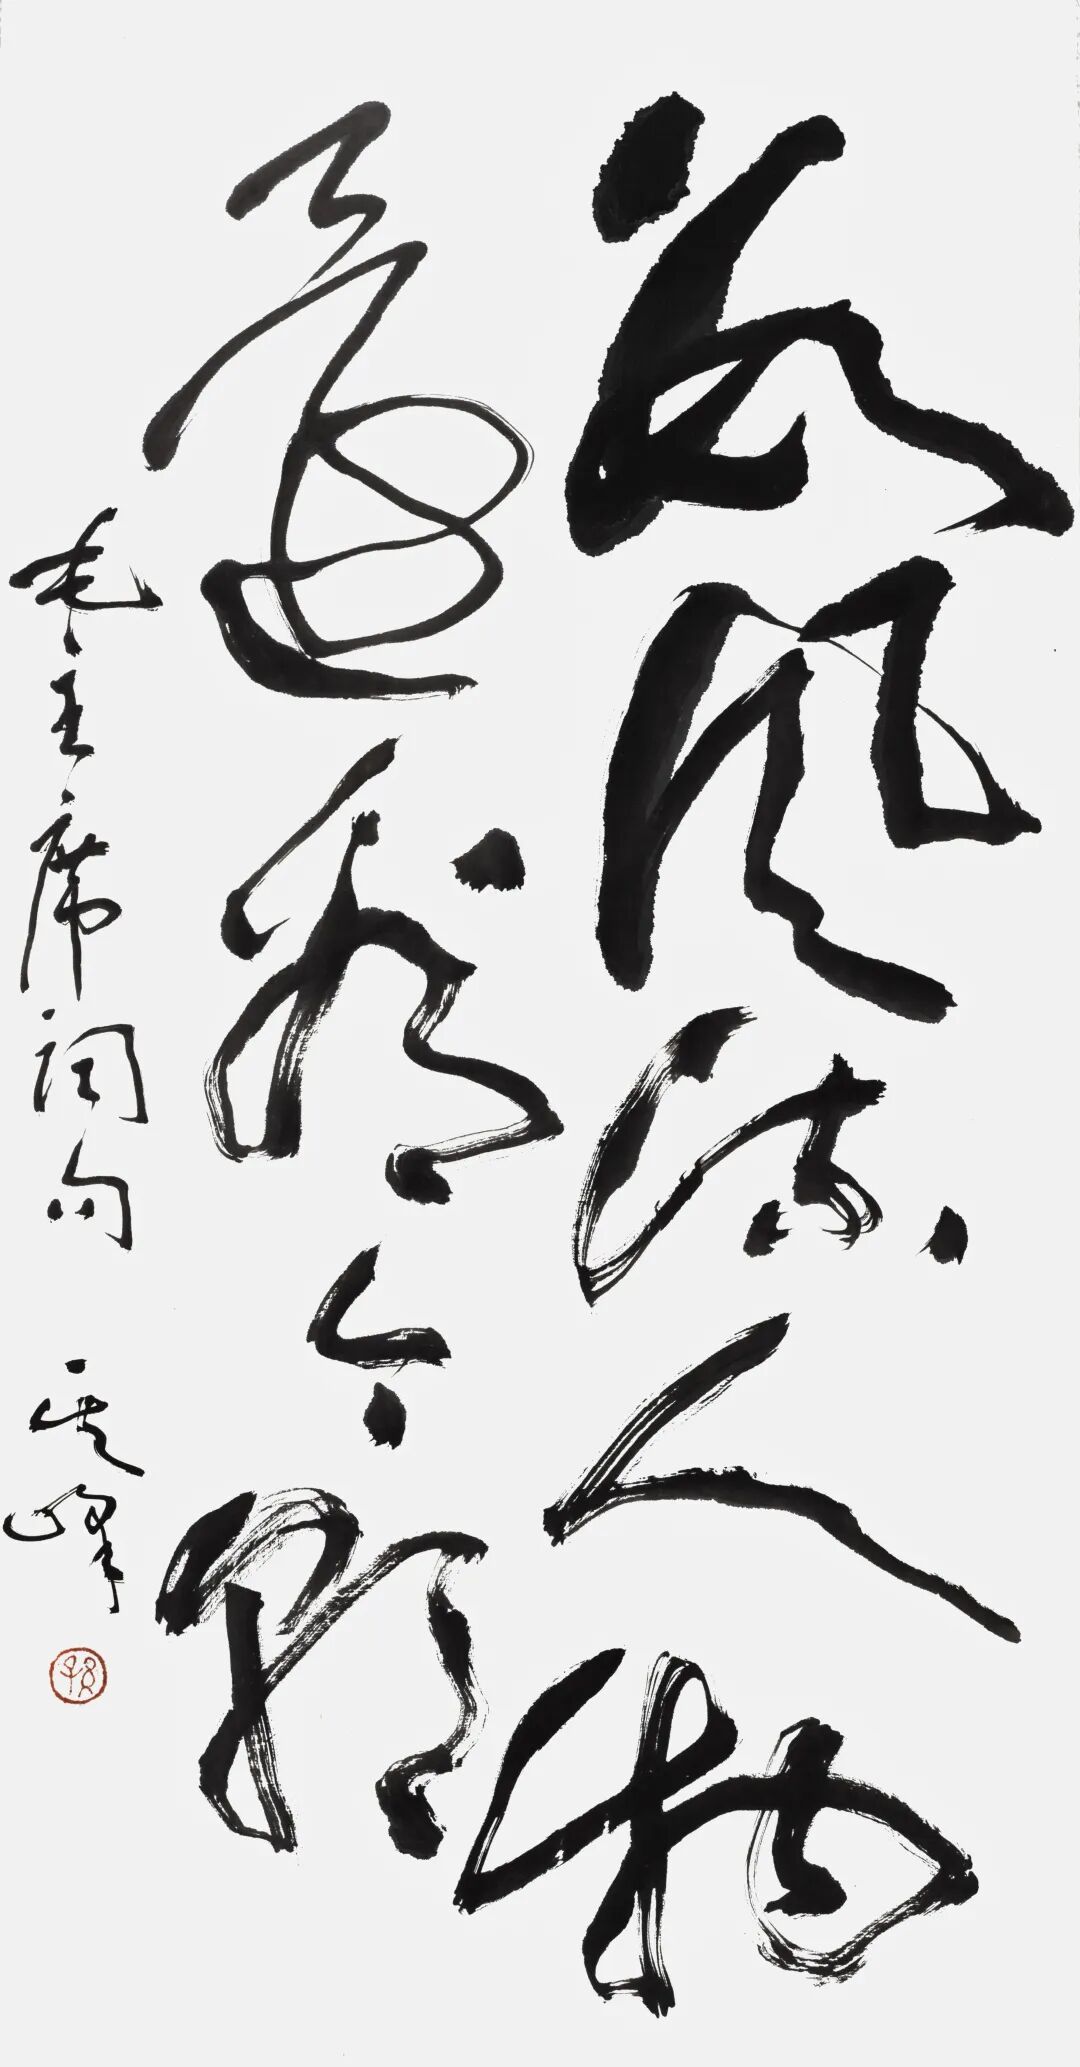 数风流人物
還看今朝
毛主席词句
峰